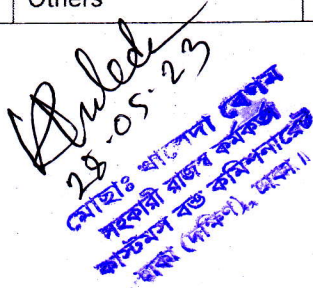 Others
28.05.23
মোছাঃ খালেদা বেগম
সহকারী রাজস্ব কর্মকর্তা
কাস্টমস বন্ড কমিশনারেট
ঢাকা (দক্ষিণ), ঢাকা।